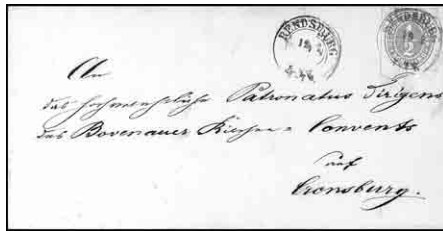 RENDSBURG
RENDSBURG
An
das hochverehrliche Patronatus Dirigens
des Bovenauer Kirchen-Convents
auf
Cronsburg.